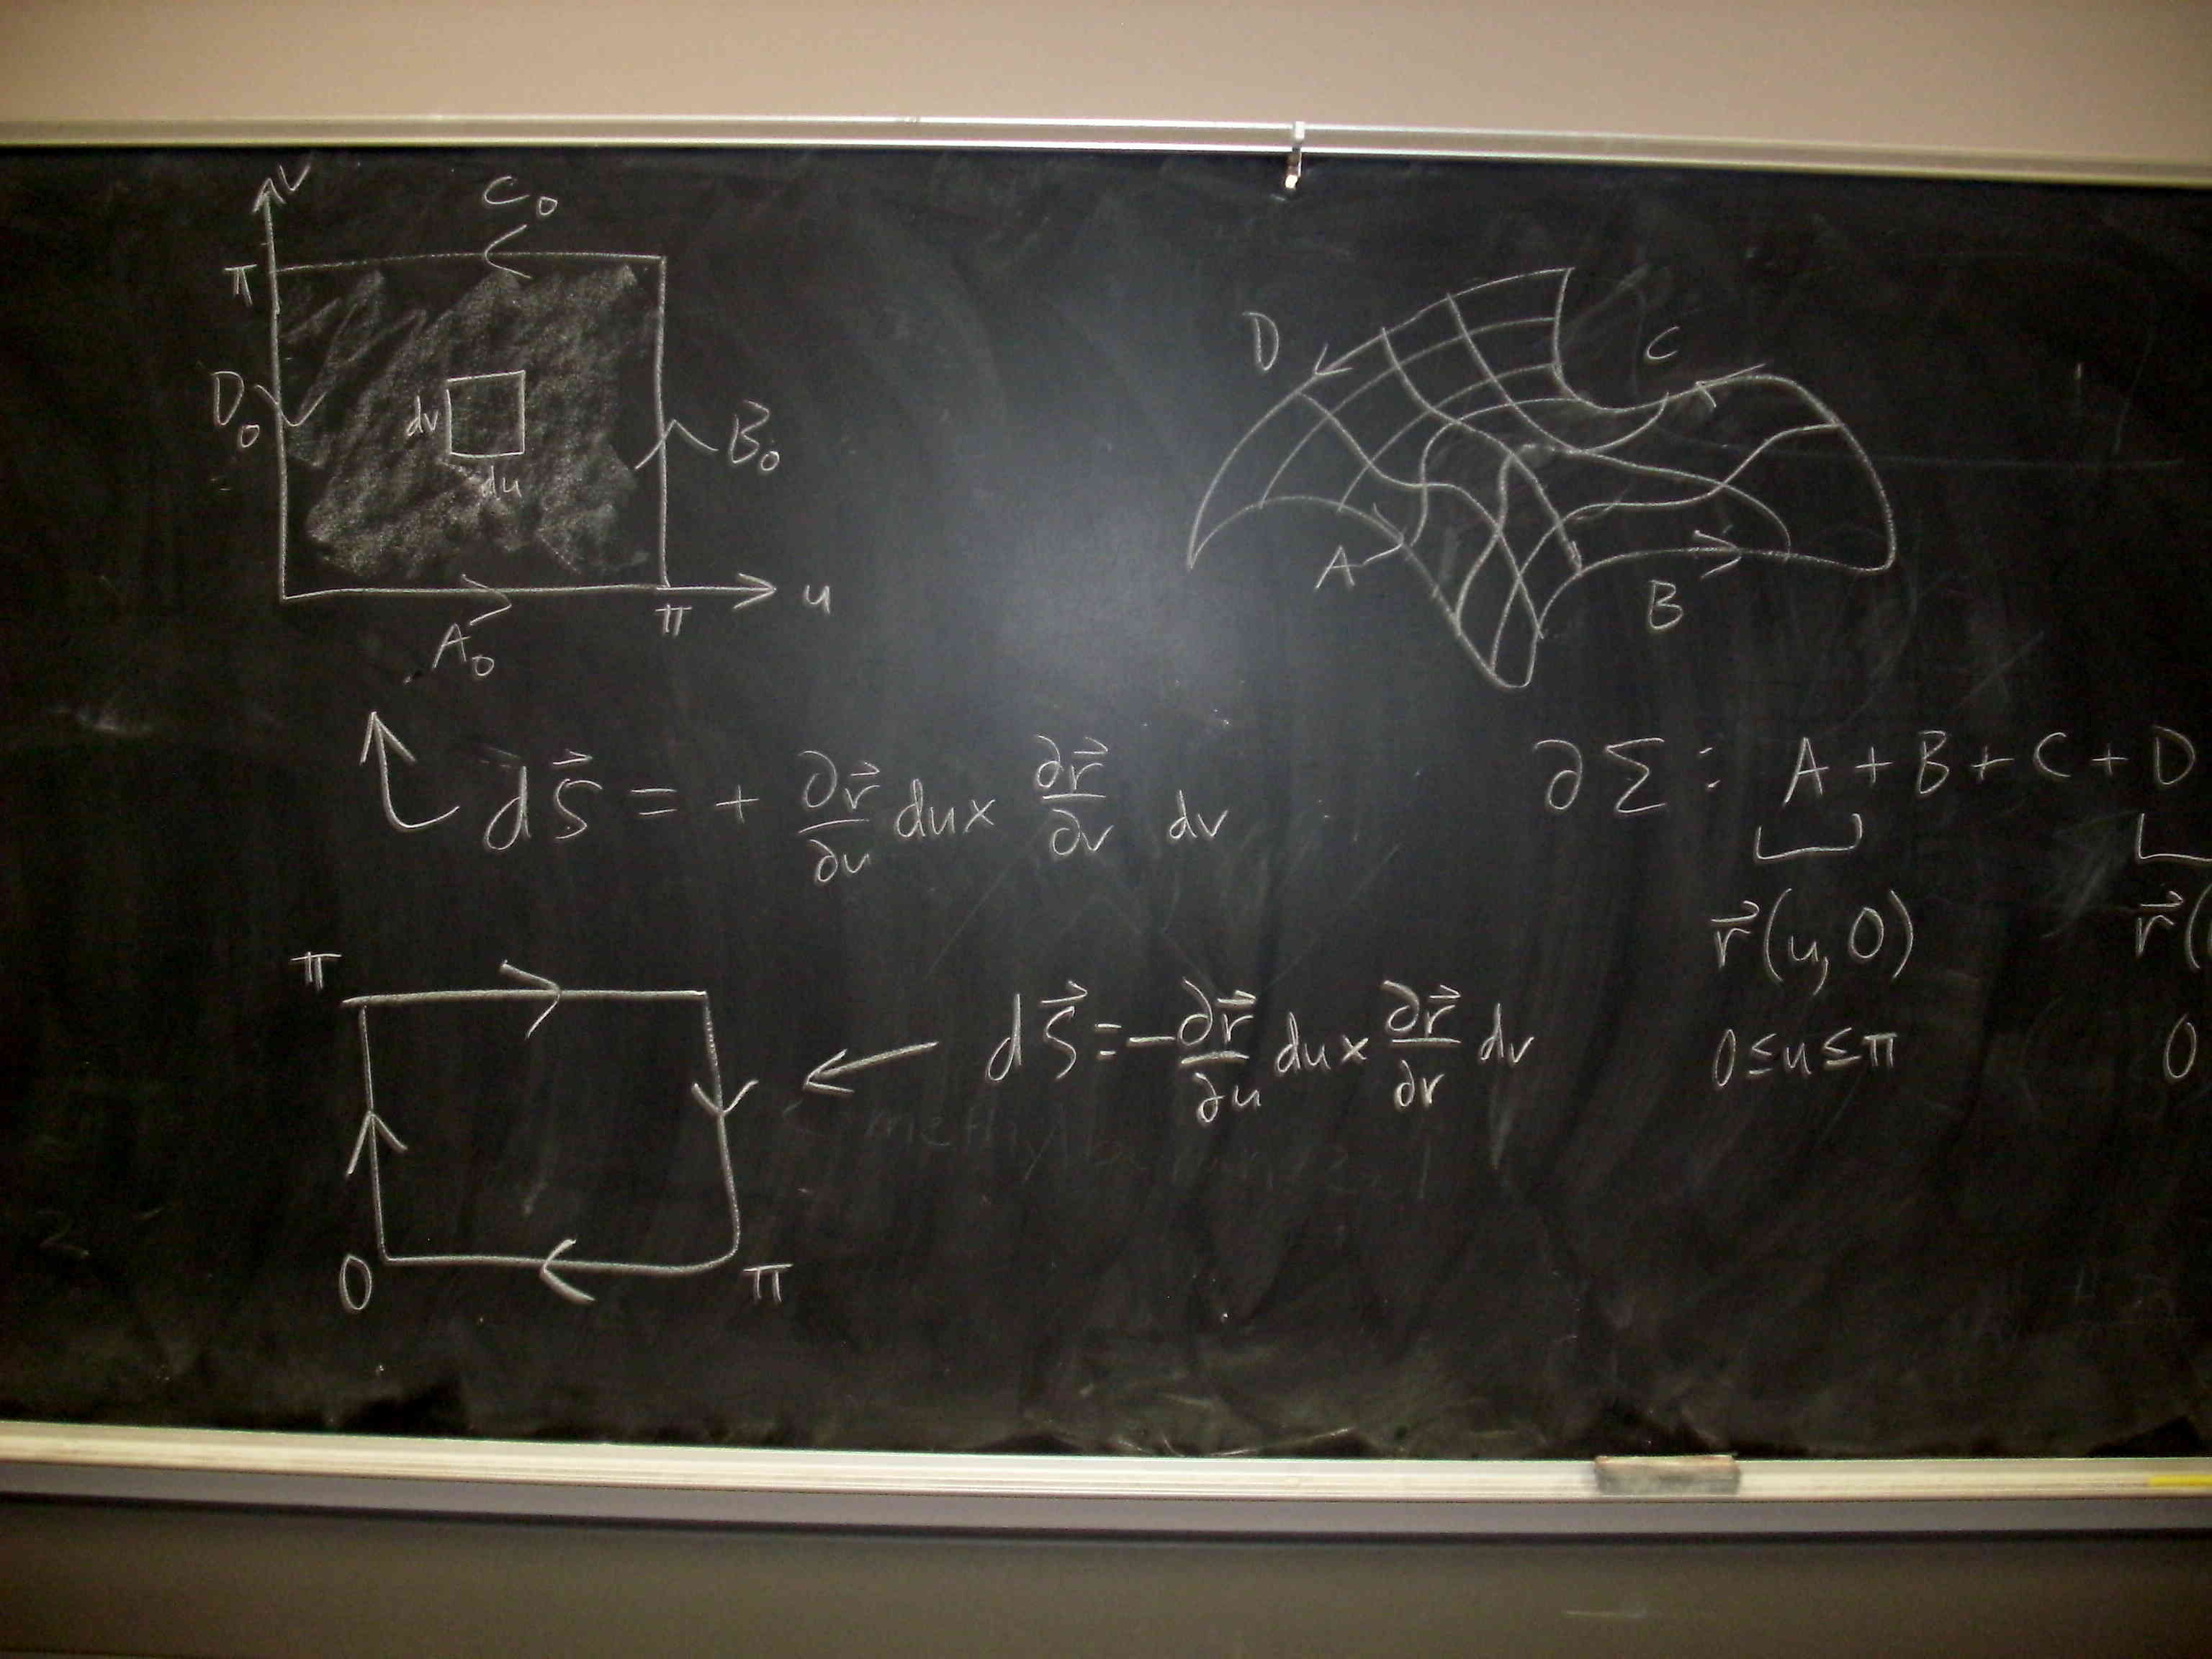 v
C₀
π
D₀
dv
du
B₀
u
π
A₀
D
C
A
B
dS⃗ = + ∂r⃗/∂u du × ∂r⃗/∂v dv
∂Σ : A + B + C + D
r⃗(u,0) r⃗(
0≤u≤π 0
π
dS⃗ = -∂r⃗/∂u du × ∂r⃗/∂v dv
0
π